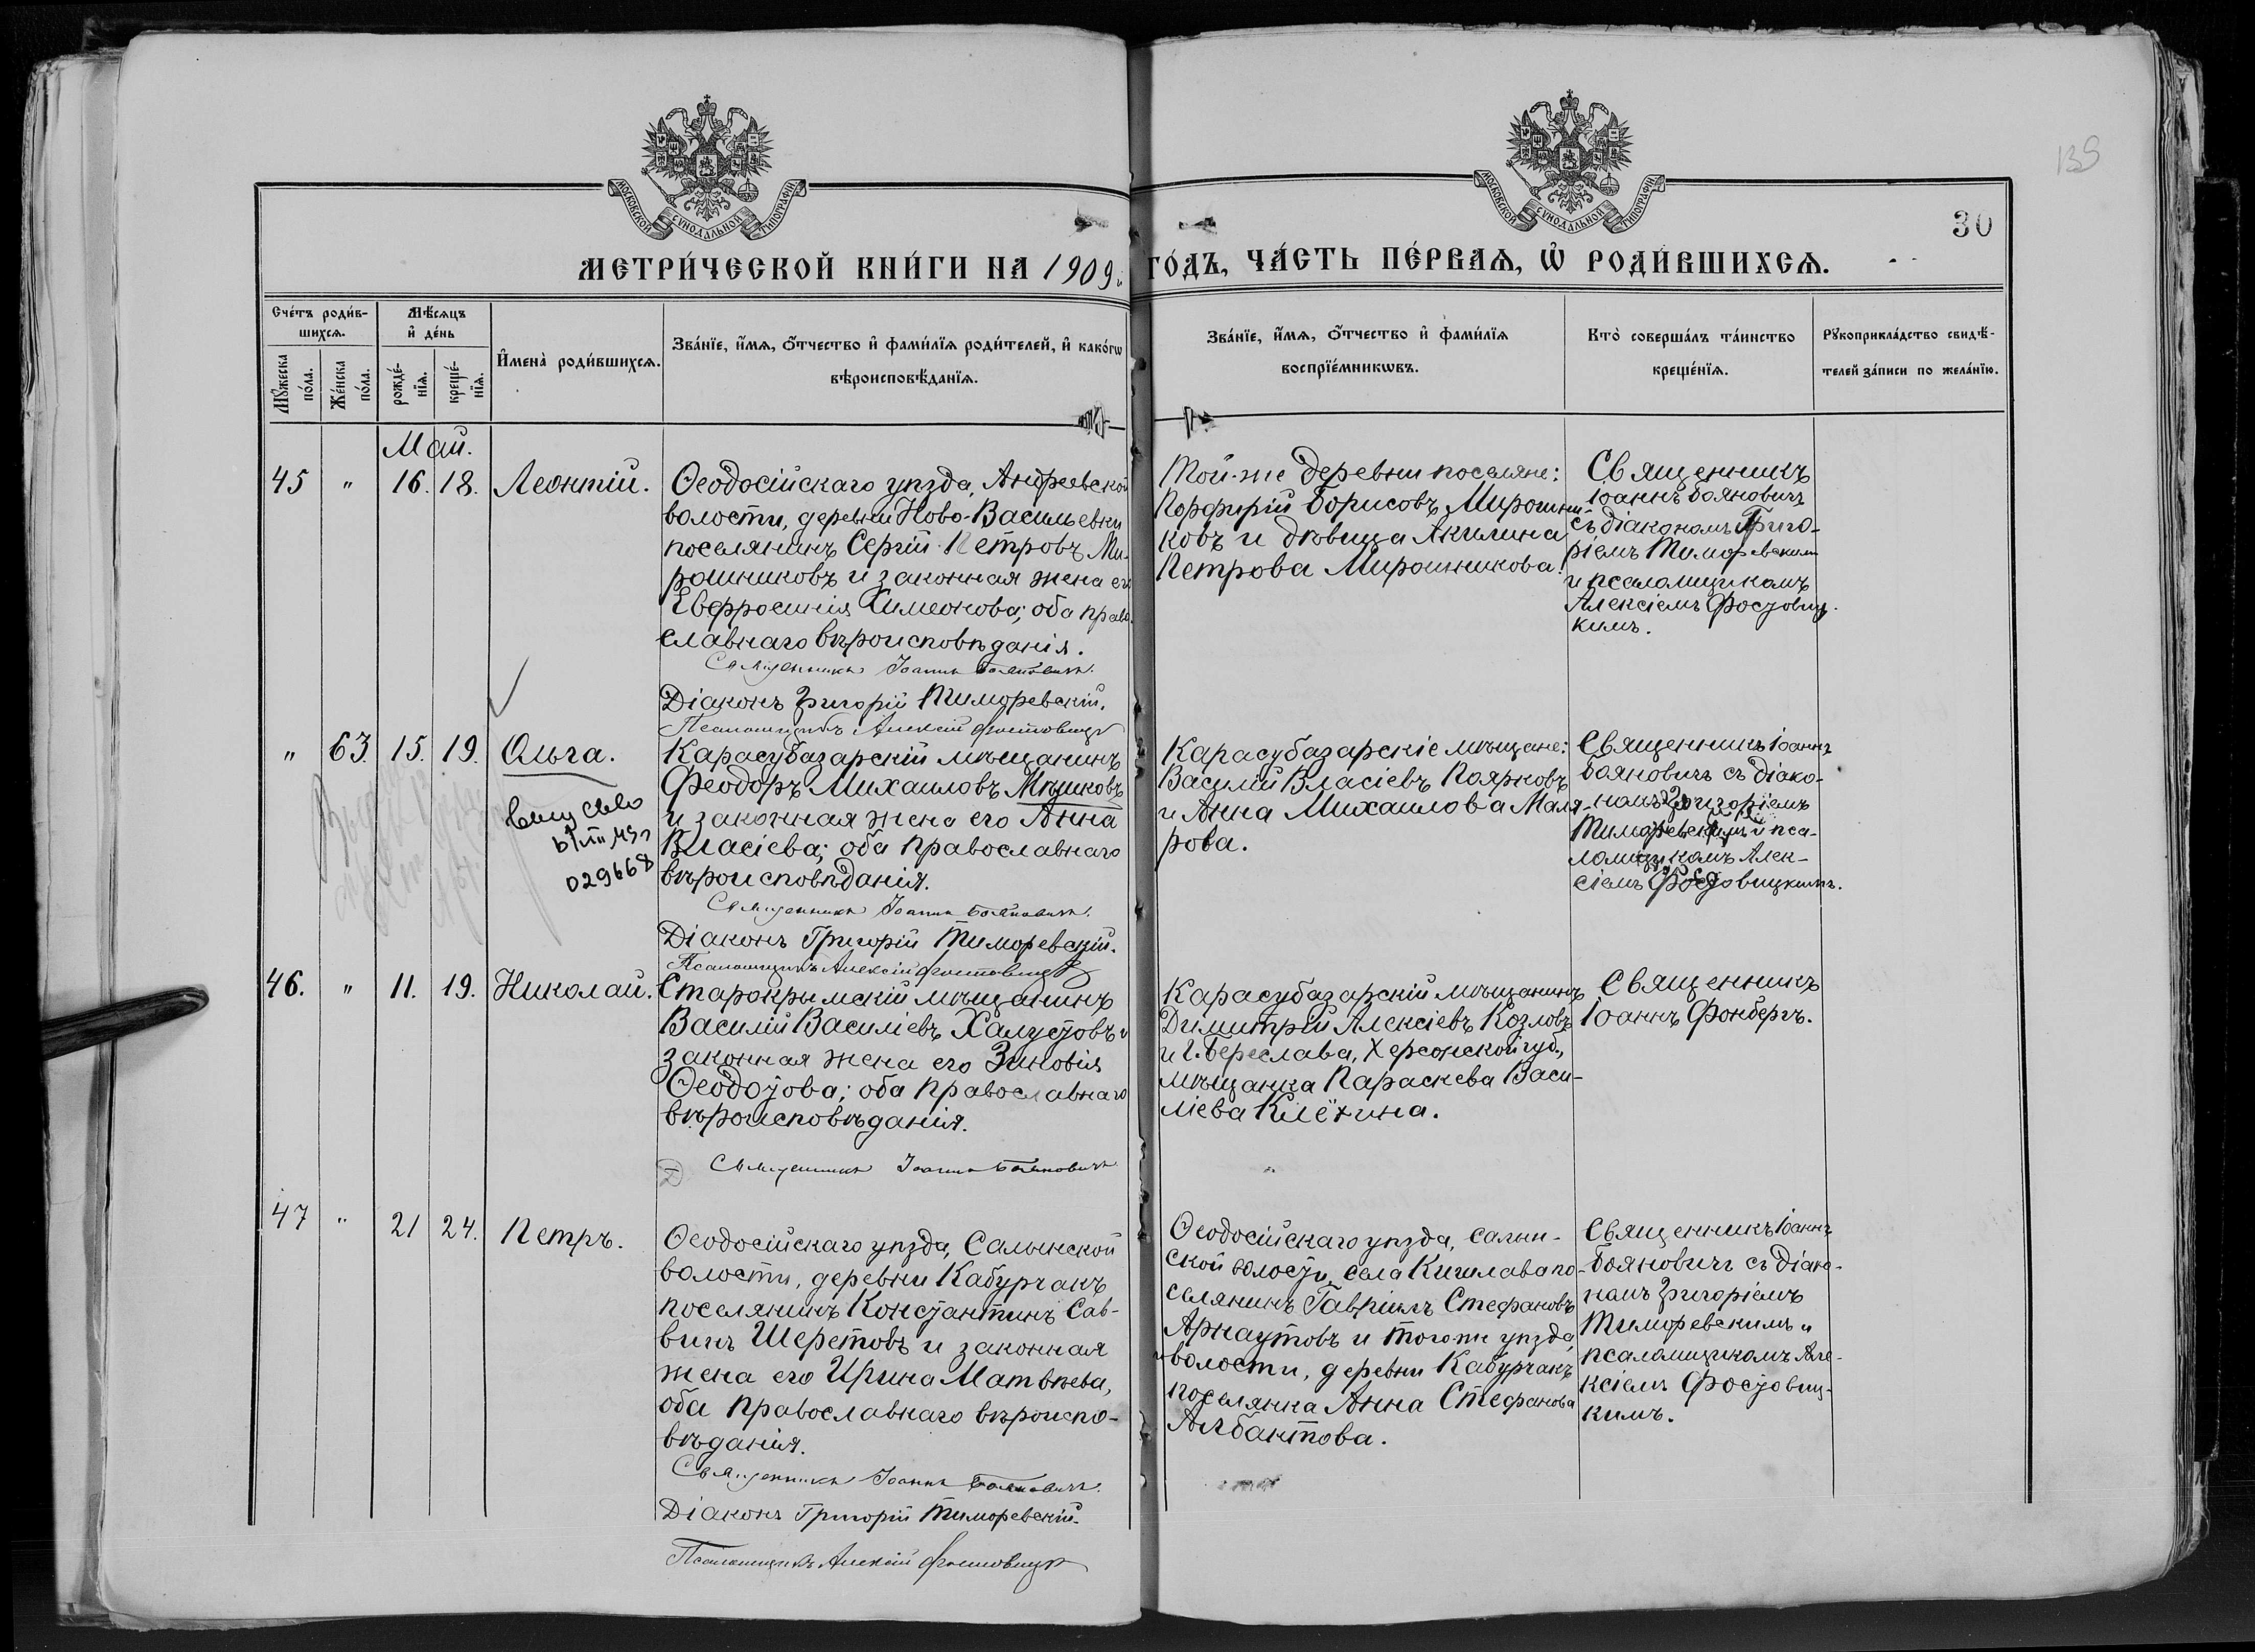 139
МОСКОВСКОЙ СУНОДАЛЬНОЙ ТИПОГРАФІИ
МОСКОВСКОЙ СУНОДАЛЬНОЙ ТИПОГРАФІИ
30
МЕТРИ́ЧЕСКОЙ КНИ́ГИ НА 1909 ГО́ДЪ, ЧА́СТЬ ПЕ́РВАЯ, Ѡ РОДИ́ВШИХСЯ.
Сче́тъ роди́в-
шихся.
Мꙋ́жеска по́ла.
Же́нска по́ла.
Мѣ́сяцъ
и҆ де́нь
рожде́-
нїя.
креще́-
нїя.
И҆мена̀ роди́вшихся.
Зва́нїе, и҆́мя, ѻ҆́тчество и҆ фами́лїя роди́телей, и҆ како́гѡ
вѣроисповѣ́данїя.
Зва́нїе, и҆́мя, ѻ҆́тчество и҆ фами́лїя
воспрїе́мникѡвъ.
Кто̀ соверша́лъ та́инство
креще́нїя.
Рꙋкоприкла́дство свидѣ́-
телей за́писи по жела́нїю.
Май.
45 " 16. 18. Леонтій.
Ѳеодосійскаго уѣзда, Андреевской
волости, деревни Ново-Васильевки
поселянинъ Сергій Петровъ Ми-
рошниковъ и законная жена его
Евфросинія Симеонова; оба право-
славнаго вѣроисповѣданія.
Священникъ Іоаннъ Бояновичъ.
Діаконъ Григорій Тиморевскій.
Псаломщикъ Алексій Фостовицкій
Той-же деревни поселяне:
Порфирій Борисовъ Мирошни-
ковъ и дѣвица Акилина
Петрова Мирошникова.
Священникъ
Іоаннъ Бояновичъ
съ діакономъ Григо-
ріемъ Тиморевскимъ
и псаломщикомъ
Алексіемъ Фостовиц-
кимъ.
" 63. 15. 19. Ольга.
029668
Карасубазарскій мѣщанинъ
Феодоръ Михаиловъ Мѣшковъ
и законная жена его Анна
Власіева; оба православнаго
вѣроисповѣданія.
Священникъ Іоаннъ Бояновичъ.
Діаконъ Григорій Тиморевскій.
Псаломщикъ Алексій Фостовицкій
Карасубазарскіе мѣщане:
Василій Власіевъ Поярковъ
и Анна Михаилова Маля-
рова.
Священникъ Іоаннъ
Бояновичъ съ діако-
номъ Григоріемъ
Тиморевскимъ и пса-
ломщикомъ Алек-
сіемъ Фостовицкимъ.
46. " 11. 19. Николай.
Старокрымскій мѣщанинъ
Василій Василіевъ Халустовъ и
законная жена его Зиновія
Ѳеодотова; оба православнаго
вѣроисповѣданія.
Священникъ Іоаннъ Бояновичъ
Карасубазарскій мѣщанинъ
Димитрій Алексіевъ Козловъ
и г. Береслава, Херсонской губ.,
мѣщанка Параскева Васи-
ліева Клёхина.
Священникъ
Іоаннъ Фонбергъ.
47 " 21 24. Петръ.
Ѳеодосійскаго уѣзда, Салынской
волости, деревни Кабурчакъ
поселянинъ Константинъ Сав-
винъ Шеретовъ и законная
жена его Ирина Матвѣева,
оба православнаго вѣроиспо-
вѣданія.
Священникъ Іоаннъ Бояновичъ.
Діаконъ Григорій Тиморевскій.
Псаломщикъ Алексій Фостовицкій
Ѳеодосійскаго уѣзда, Салын-
ской волости, села Кишлава по-
селянинъ Гавріилъ Стефановъ
Арнаутовъ и того-же уѣзда
и волости, деревни Кабурчакъ
поселянка Анна Стефанова
Албантова.
Священникъ Іоаннъ
Бояновичъ съ діако-
номъ Григоріемъ
Тиморевскимъ и
псаломщикомъ Але-
ксіемъ Фостовиц-
кимъ.